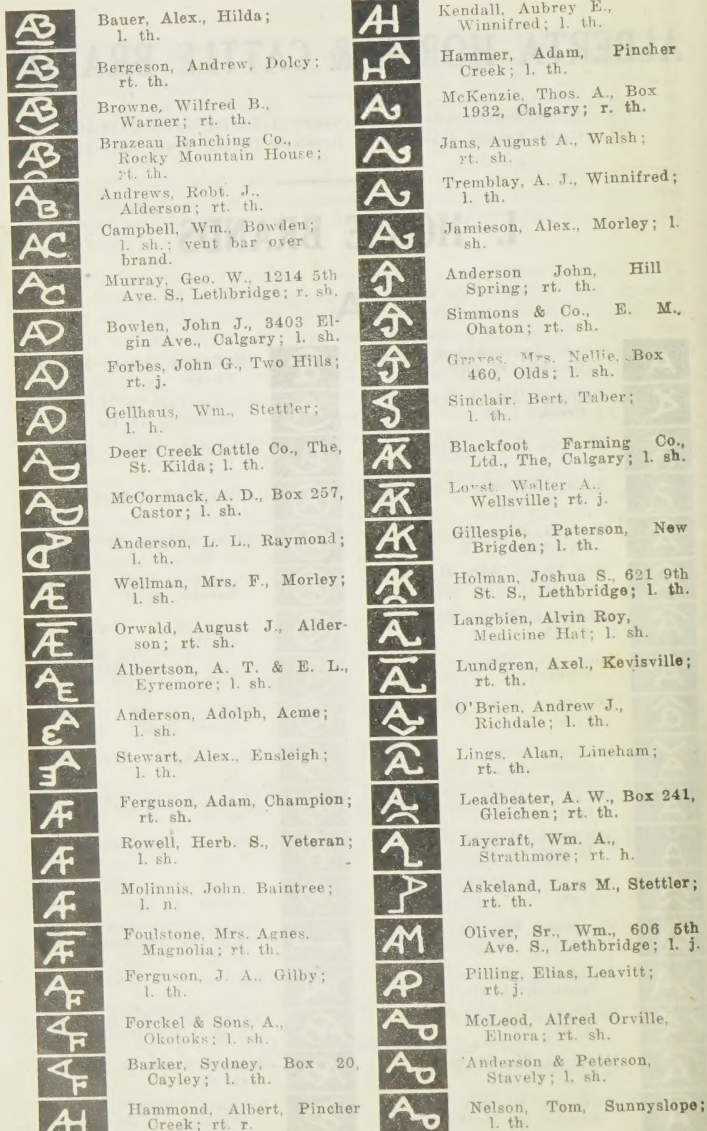 Bauer, Alex., Hilda;
l. th.
Bergeson, Andrew, Dolcy;
rt. th.
Browne, Wilfred B.,
Warner; rt. th.
Brazeau Ranching Co.,
Rocky Mountain House;
rt. th.
Andrews, Robt. J.,
Alderson; rt. th.
Campbell, Wm., Bowden;
l. sh.; vent bar over
brand.
Murray, Geo. W., 1214 5th
Ave. S., Lethbridge; r. sh.
Bowlen, John J., 3403 El-
gin Ave., Calgary; l. sh.
Forbes, John G., Two Hills;
rt. j.
Gellhaus, Wm., Stettler;
l. h.
Deer Creek Cattle Co., The,
St. Kilda; l. th.
McCormack, A. D., Box 257,
Castor; l. sh.
Anderson, L. L., Raymond;
l. th.
Wellman, Mrs. F., Morley;
l. sh.
Orwald, August J., Alder-
son; rt. sh.
Albertson, A. T. & E. L.,
Eyremore; l. sh.
Anderson, Adolph, Acme;
l. sh.
Stewart, Alex., Ensleigh;
l. th.
Ferguson, Adam, Champion;
rt. sh.
Rowell, Herb. S., Veteran;
l. sh.
Molinnis, John. Baintree;
l. n.
Foulstone, Mrs. Agnes,
Magnolia; rt. th.
Ferguson, J. A., Gilby;
l. th.
Forckel & Sons, A.,
Okotoks; l. sh.
Barker, Sydney, Box 20,
Cayley; l. th.
Hammond, Albert, Pincher
Creek; rt. r.
Kendall, Aubrey E.,
Winnifred; l. th.
Hammer, Adam, Pincher
Creek; l. th.
McKenzie, Thos. A., Box
1932, Calgary; r. th.
Jans, August A., Walsh;
rt. sh.
Tremblay, A. J., Winnifred;
l. th.
Jamieson, Alex., Morley; l.
sh.
Anderson John, Hill
Spring; rt. th.
Simmons & Co., E. M.,
Ohaton; rt. sh.
Graves, Mrs. Nellie, Box
460, Olds; l. sh.
Sinclair, Bert, Taber;
l. th.
Blackfoot Farming Co.,
Ltd., The, Calgary; l. sh.
Walter A.,
Wellsville; rt. j.
Gillespie, Paterson, New
Brigden; l. th.
Holman, Joshua S., 621 9th
St. S., Lethbridge; l. th.
Langbien, Alvin Roy,
Medicine Hat; l. sh.
Lundgren, Axel., Kevisville;
rt. th.
O'Brien, Andrew J.,
Richdale; l. th.
Lings, Alan, Lineham;
rt. th.
Leadbeater, A. W., Box 241,
Gleichen; rt. th.
Laycraft, Wm. A.,
Strathmore; rt. h.
Askeland, Lars M., Stettler;
rt. th.
Oliver, Sr., Wm., 606 5th
Ave. S., Lethbridge; l. j.
Pilling, Elias, Leavitt;
rt. j.
McLeod, Alfred Orville,
Elnora; rt. sh.
Anderson & Peterson,
Stavely; l. sh.
Nelson, Tom, Sunnyslope;
l. th.